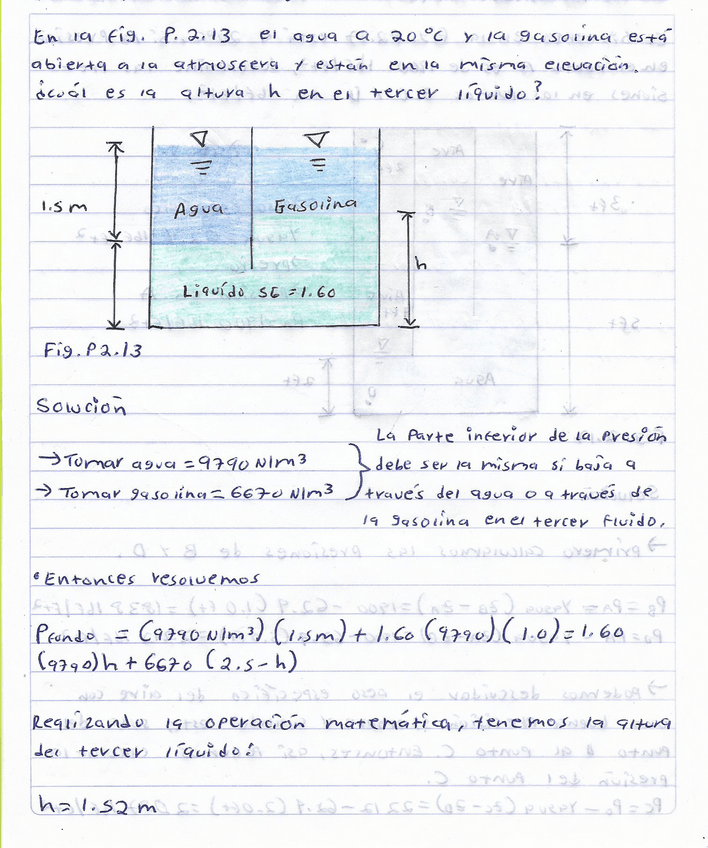 En la Fig. P. 2.13 el agua a 20°C y la gasolina está
abierta a la atmosfera y están en la misma elevación.
¿cuál es la altura h en el tercer líquido?
1.5 m
Agua
Gasolina
h
Liquído SE = 1.60
Fig. P2.13
Solución
→ Tomar agua = 9790 N/m³
→ Tomar gasolina = 6670 N/m³
La Parte inferior de la presión
debe ser la misma si baja a
través del agua o a través de
la gasolina en el tercer fluido.
• Entonces resolvemos
Pfondo = (9790 N/m³) (1.5m) + 1.60 (9790) (1.0) = 1.60
(9790)h + 6670 (2.5-h)
Realizando la operación matemática, tenemos la altura
del tercer líquido:
h = 1.52 m